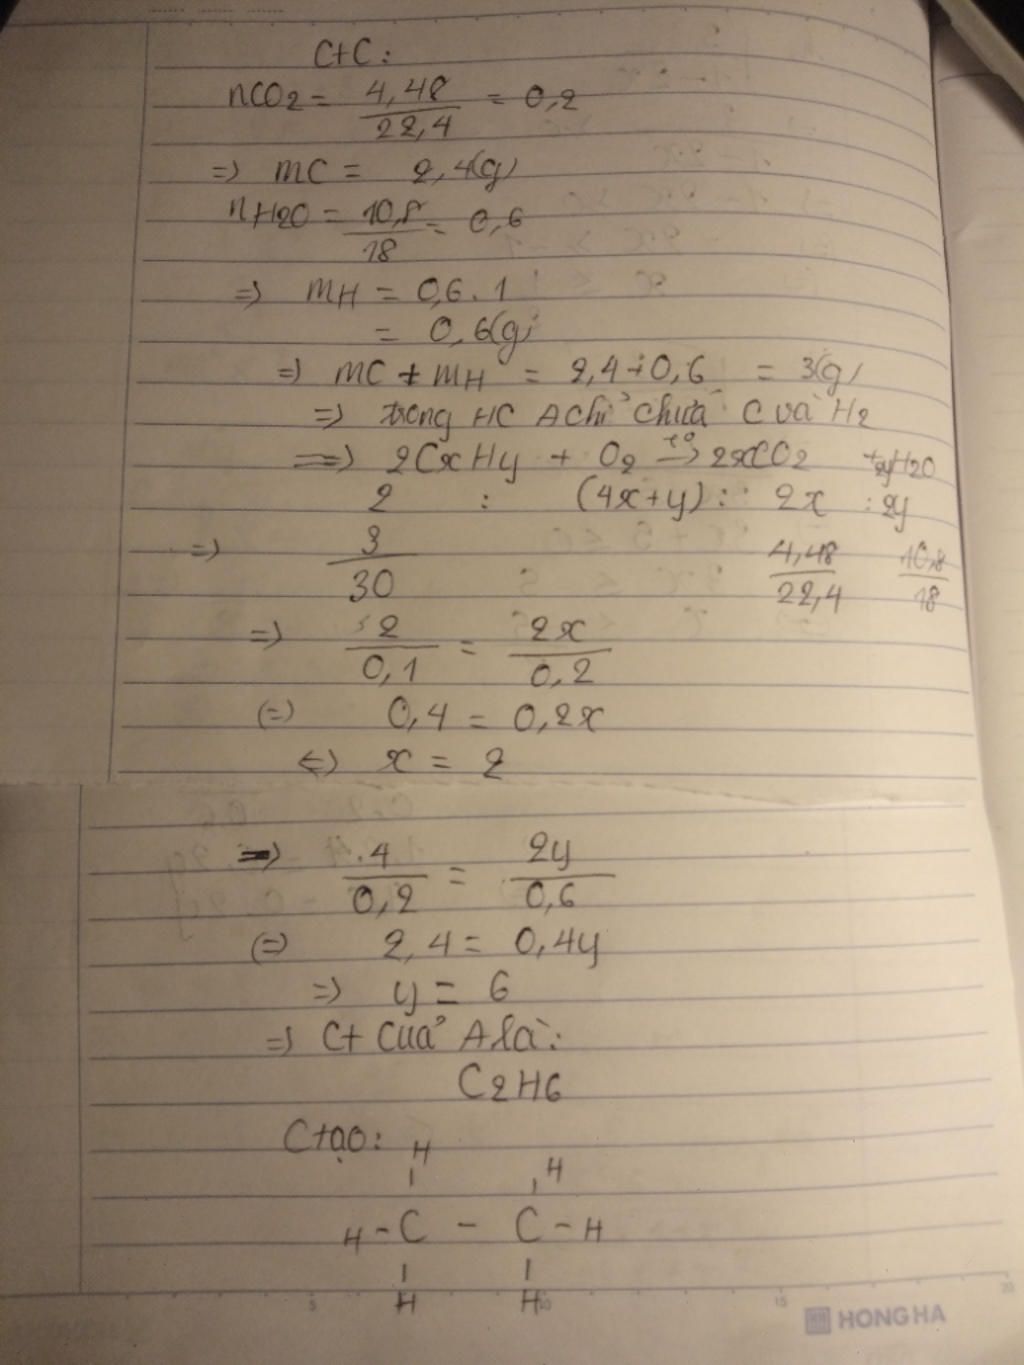 C+C:
nCO2 = 4,48/22,4 = 0,2
=> mC = 2,4(g)
nH2O = 10,8/18 = 0,6
=> mH = 0,6.1
= 0,6(g)
=> mC + mH = 2,4+0,6 = 3(g)
=> trong HC A chỉ chứa C và H2
=> 2CxHy + O2 t° → 2xCO2 + 2yH2O
2 : (4x+y) : 2x : 2y
=> 3/30 4,48/22,4 10,8/18
=> 2/0,1 = 2x/0,2
(=) 0,4 = 0,2x
<=> x = 2
=> 4/0,2 = 2y/0,6
(=) 2,4 = 0,4y
=> y = 6
=> Ct của A là:
C2H6
Ctạo:
H H
H - C - C - H
H H
5 10 15 20
HONG HA